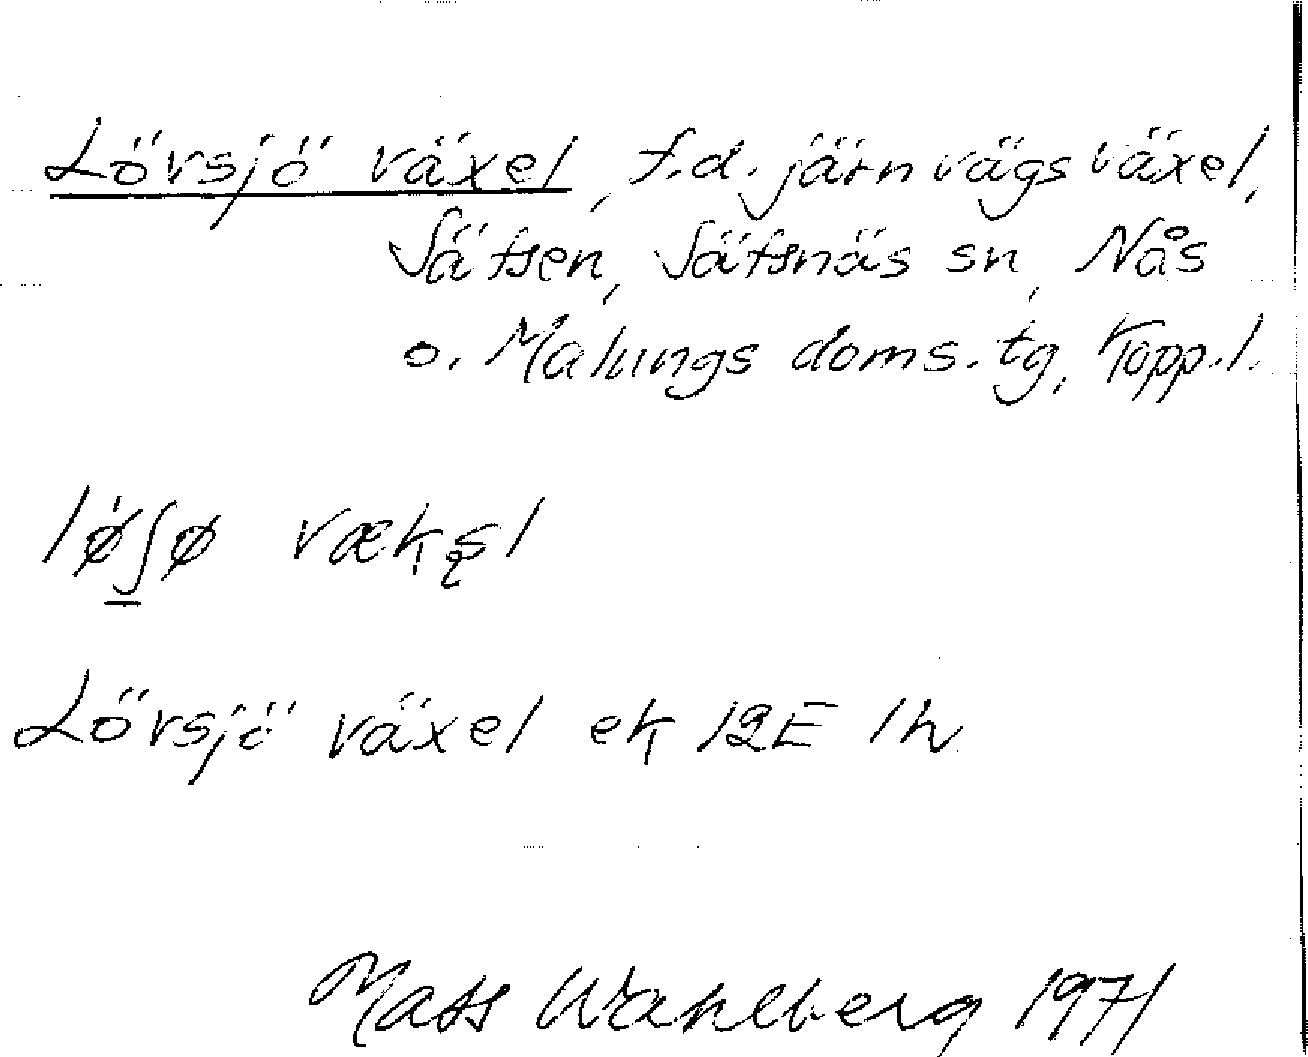 Lövsjö växel, f.d. järnvägsväxel,
Sätsen, Säfsnäs sn, Nås
o. Malungs doms. tg, Kopp. l.
løʃø væksl
Lövsjö växel ek 12E 1h
Mats Wahlberg 1971